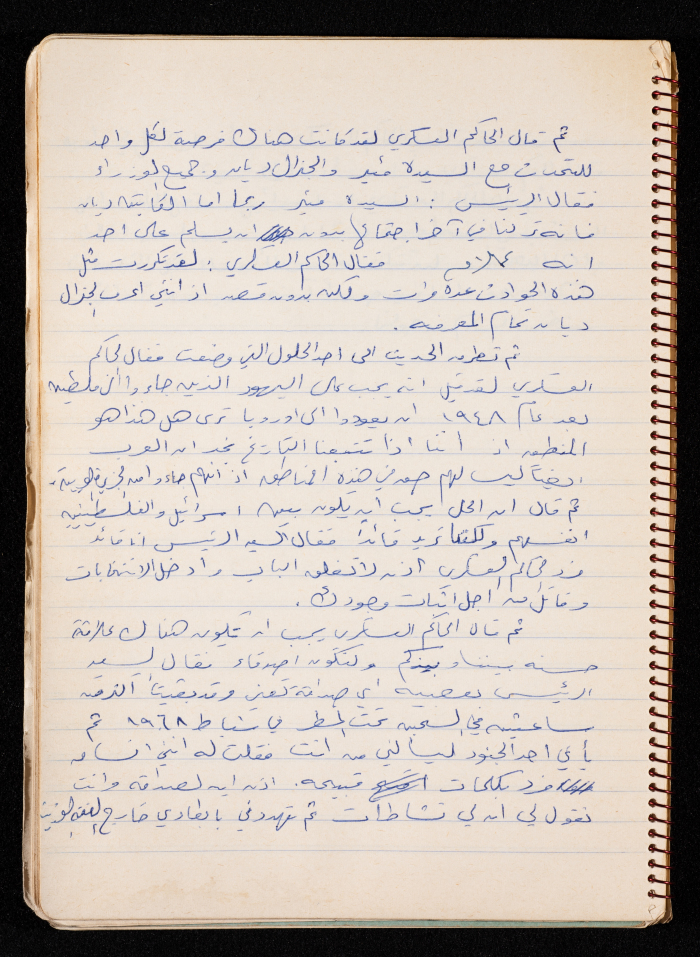 ثم قال الحاكم العسكري لقد كانت هناك فرصة لكل واحد
للتحدث مع السيدة مئير والجنرال ديان وجميع الوزراء
فقال الرئيس : السيدة مئير ربما اما الكابتن ديان
فانه تركنا في آخر اجتماع لها بدون ان يسلم على احد
انه عملاق فقال الحاكم العسكري : لقد تكررت مثل
هذه الحوادث عدة مرات ولكن بدون قصد اذ انني اعرف الجنرال
ديان تمام المعرفه .
ثم تطرق الحديث الى احد الحلول التي وضعت فقال الحاكم
العسكري لقد قيل انه يجب على اليهود الذين جاءوا الى فلسطين
بعد عام ١٩٤٨ ان يعودوا الى اوروبا ترى هل هذا هو
المنطق اذ اننا اذا تتبعنا التاريخ نجد ان العرب
ايضاً ليس لهم حق في هذه المناطق اذ انهم جاءوا من الجزيرة العربية
ثم قال ان الحل يجب أن يكون بين اسرائيل والفلسطينيين
انفسهم ولكننا نريد قائداً فقال السيد الرئيس انا قائد
فرد الحاكم العسكري اذن لا تغلق الباب وادخل الانتخابات
وقاتل من اجل اثبات وجودك .
ثم قال الحاكم العسكري يجب ان تكون هناك علاقة
حسنه بيننا وبينكم ولنكون اصدقاء فقال السيد
الرئيس بعصبيه اي صداقة تعني وقد بقيت الزمن
ساعتين في السجن تحت المطر في شباط ١٩٦٨ ثم
يأتي احد الجنود ليسألني من انت فقلت له انني انسان
فرد بكلمات قبيحه . اذن اين الصداقه وانت
تقول لي ان لي نشاطات ثم تهددوني بابعادي خارج الضفه الغربيه